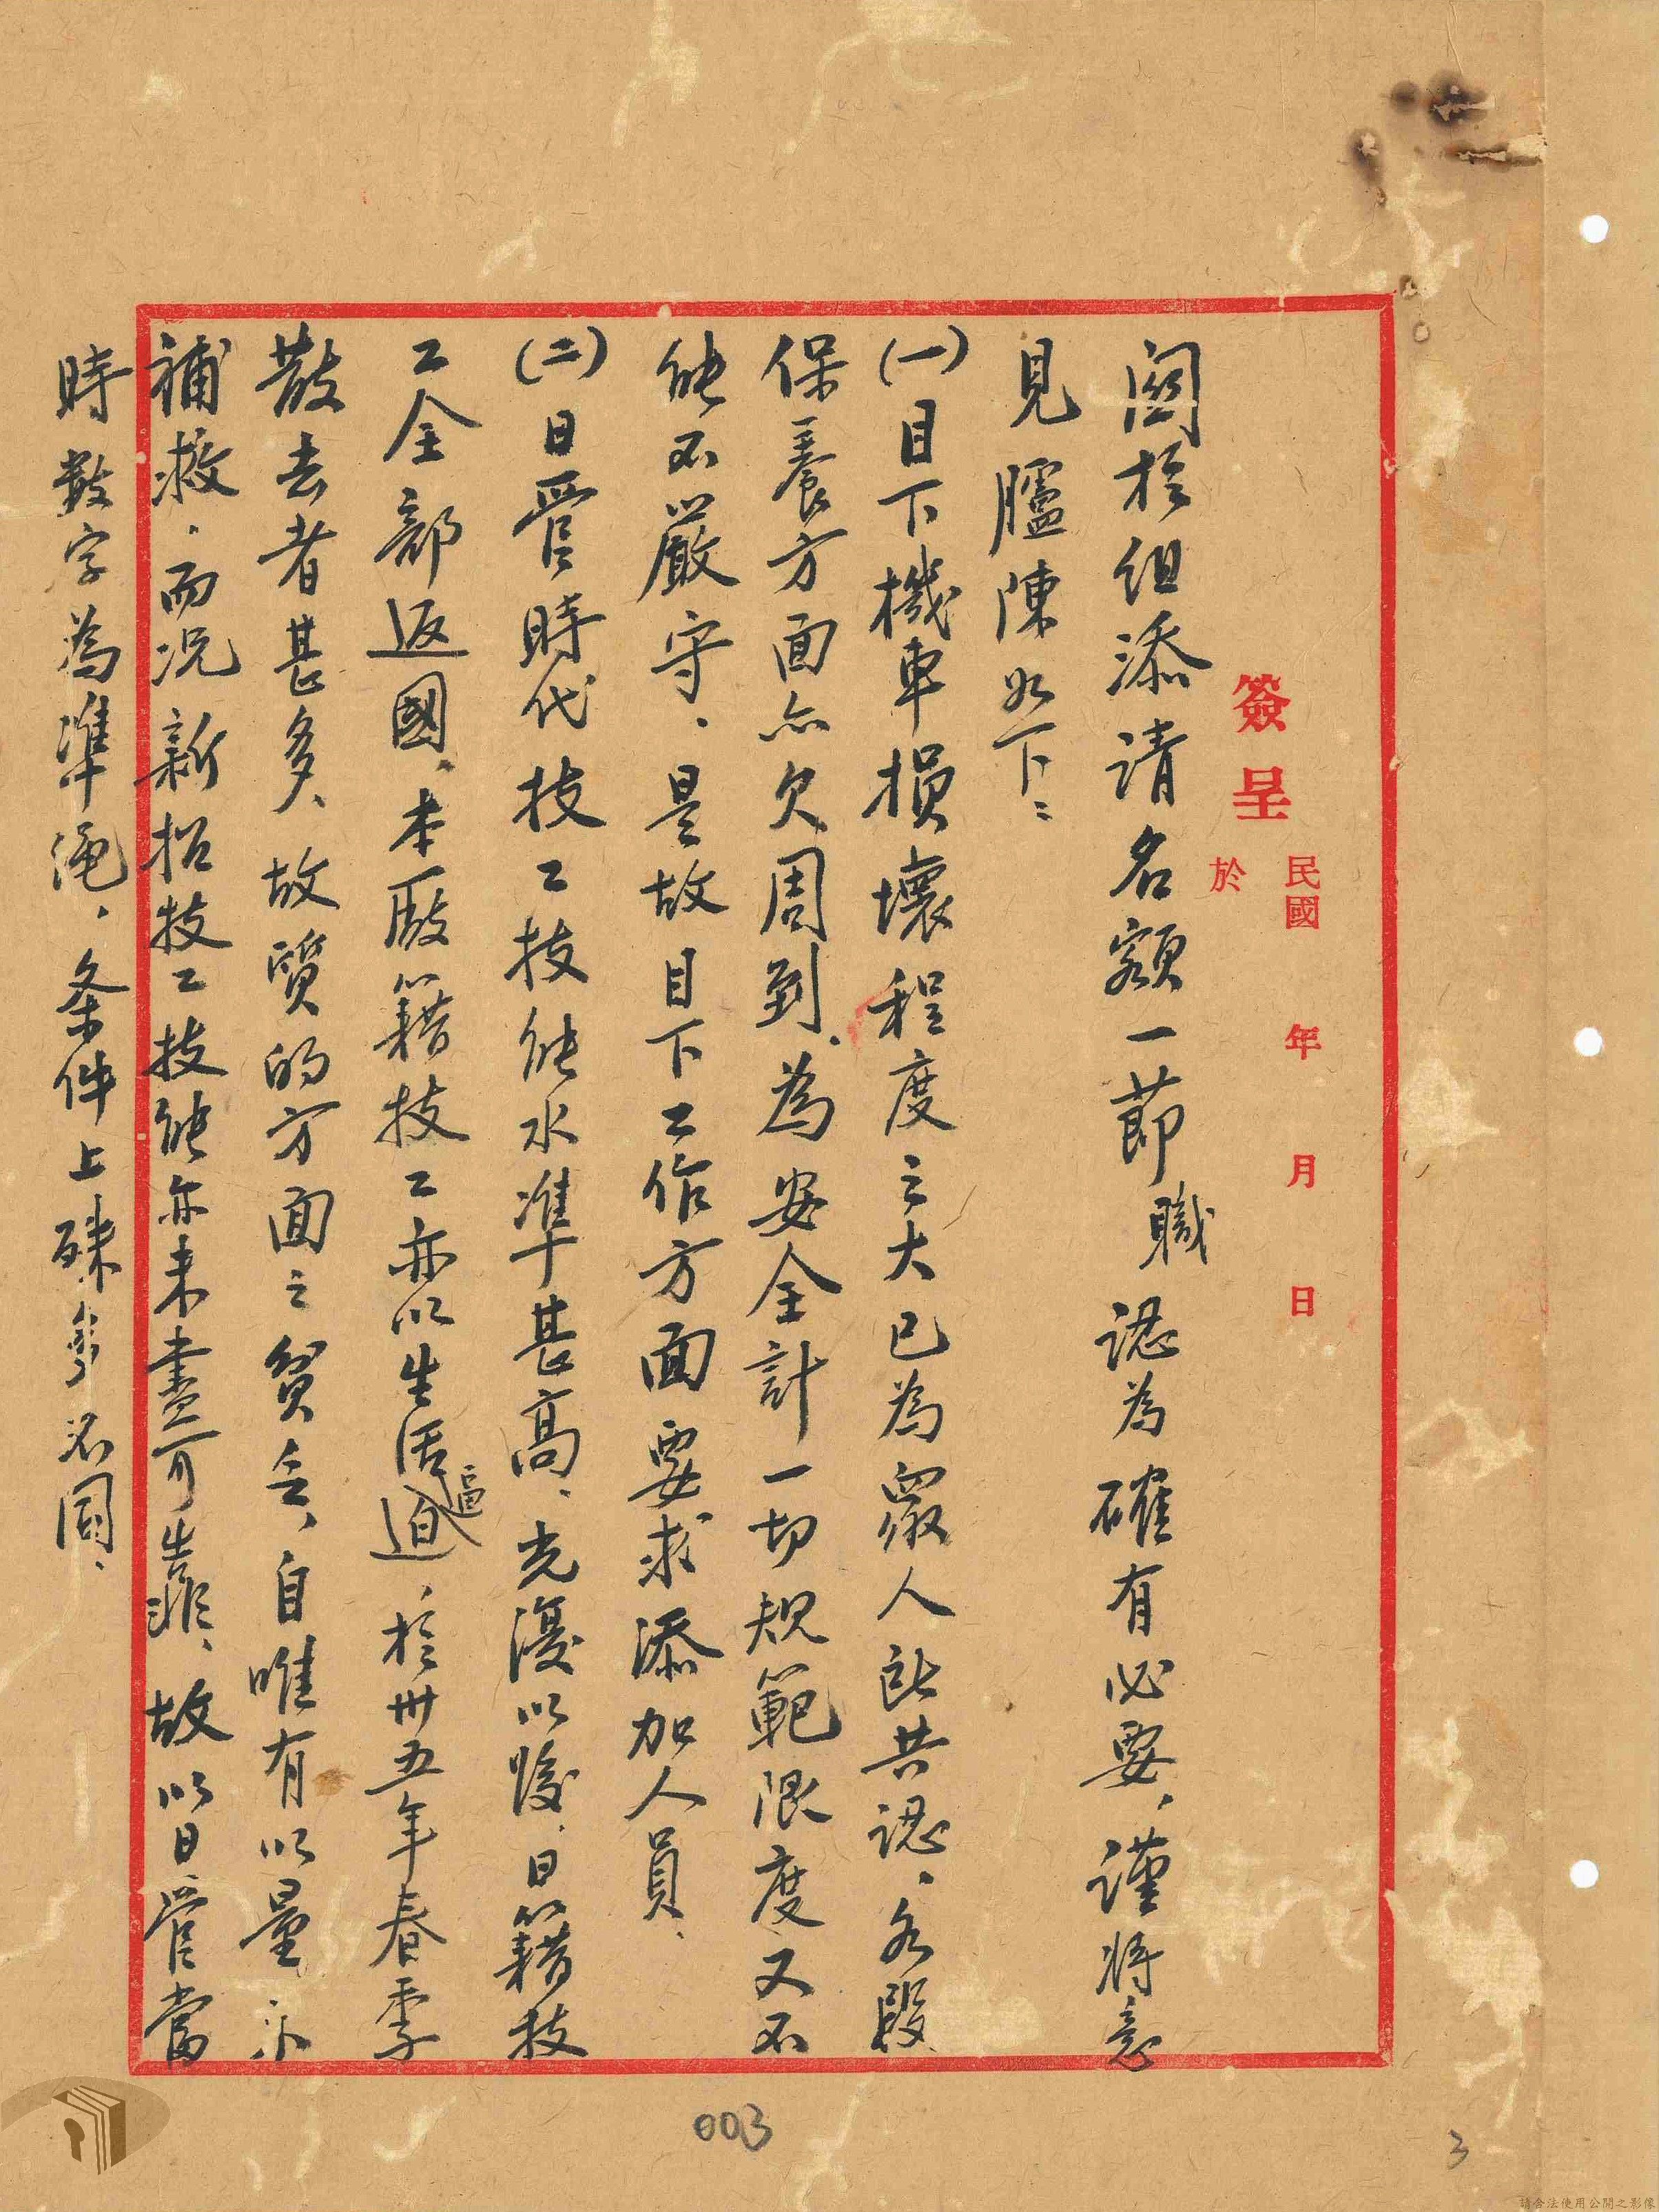 簽呈
民國 年 月 日
於
關於組添請名額一節職認為確有必要，謹將意
見臚陳如下：
(一)目下機車損壞程度之大已為眾人所共認，各段
保養方面亦欠周到、為安全計一切規範限度又不
能不嚴守、是故目下工作方面要求添加人員、
(二)日管時代技工技能水準甚高、光復以後、日籍技
工全部返國、本廠籍技工亦以生活逼迫、於卅五年春季
散去者甚多、故質的方面之貧乏、自唯有以量來
補救、而況新招技工技能亦未盡可靠、故以日管當
時數字為準繩、条件上殊多不同、
003
3
請合法使用公開之影像